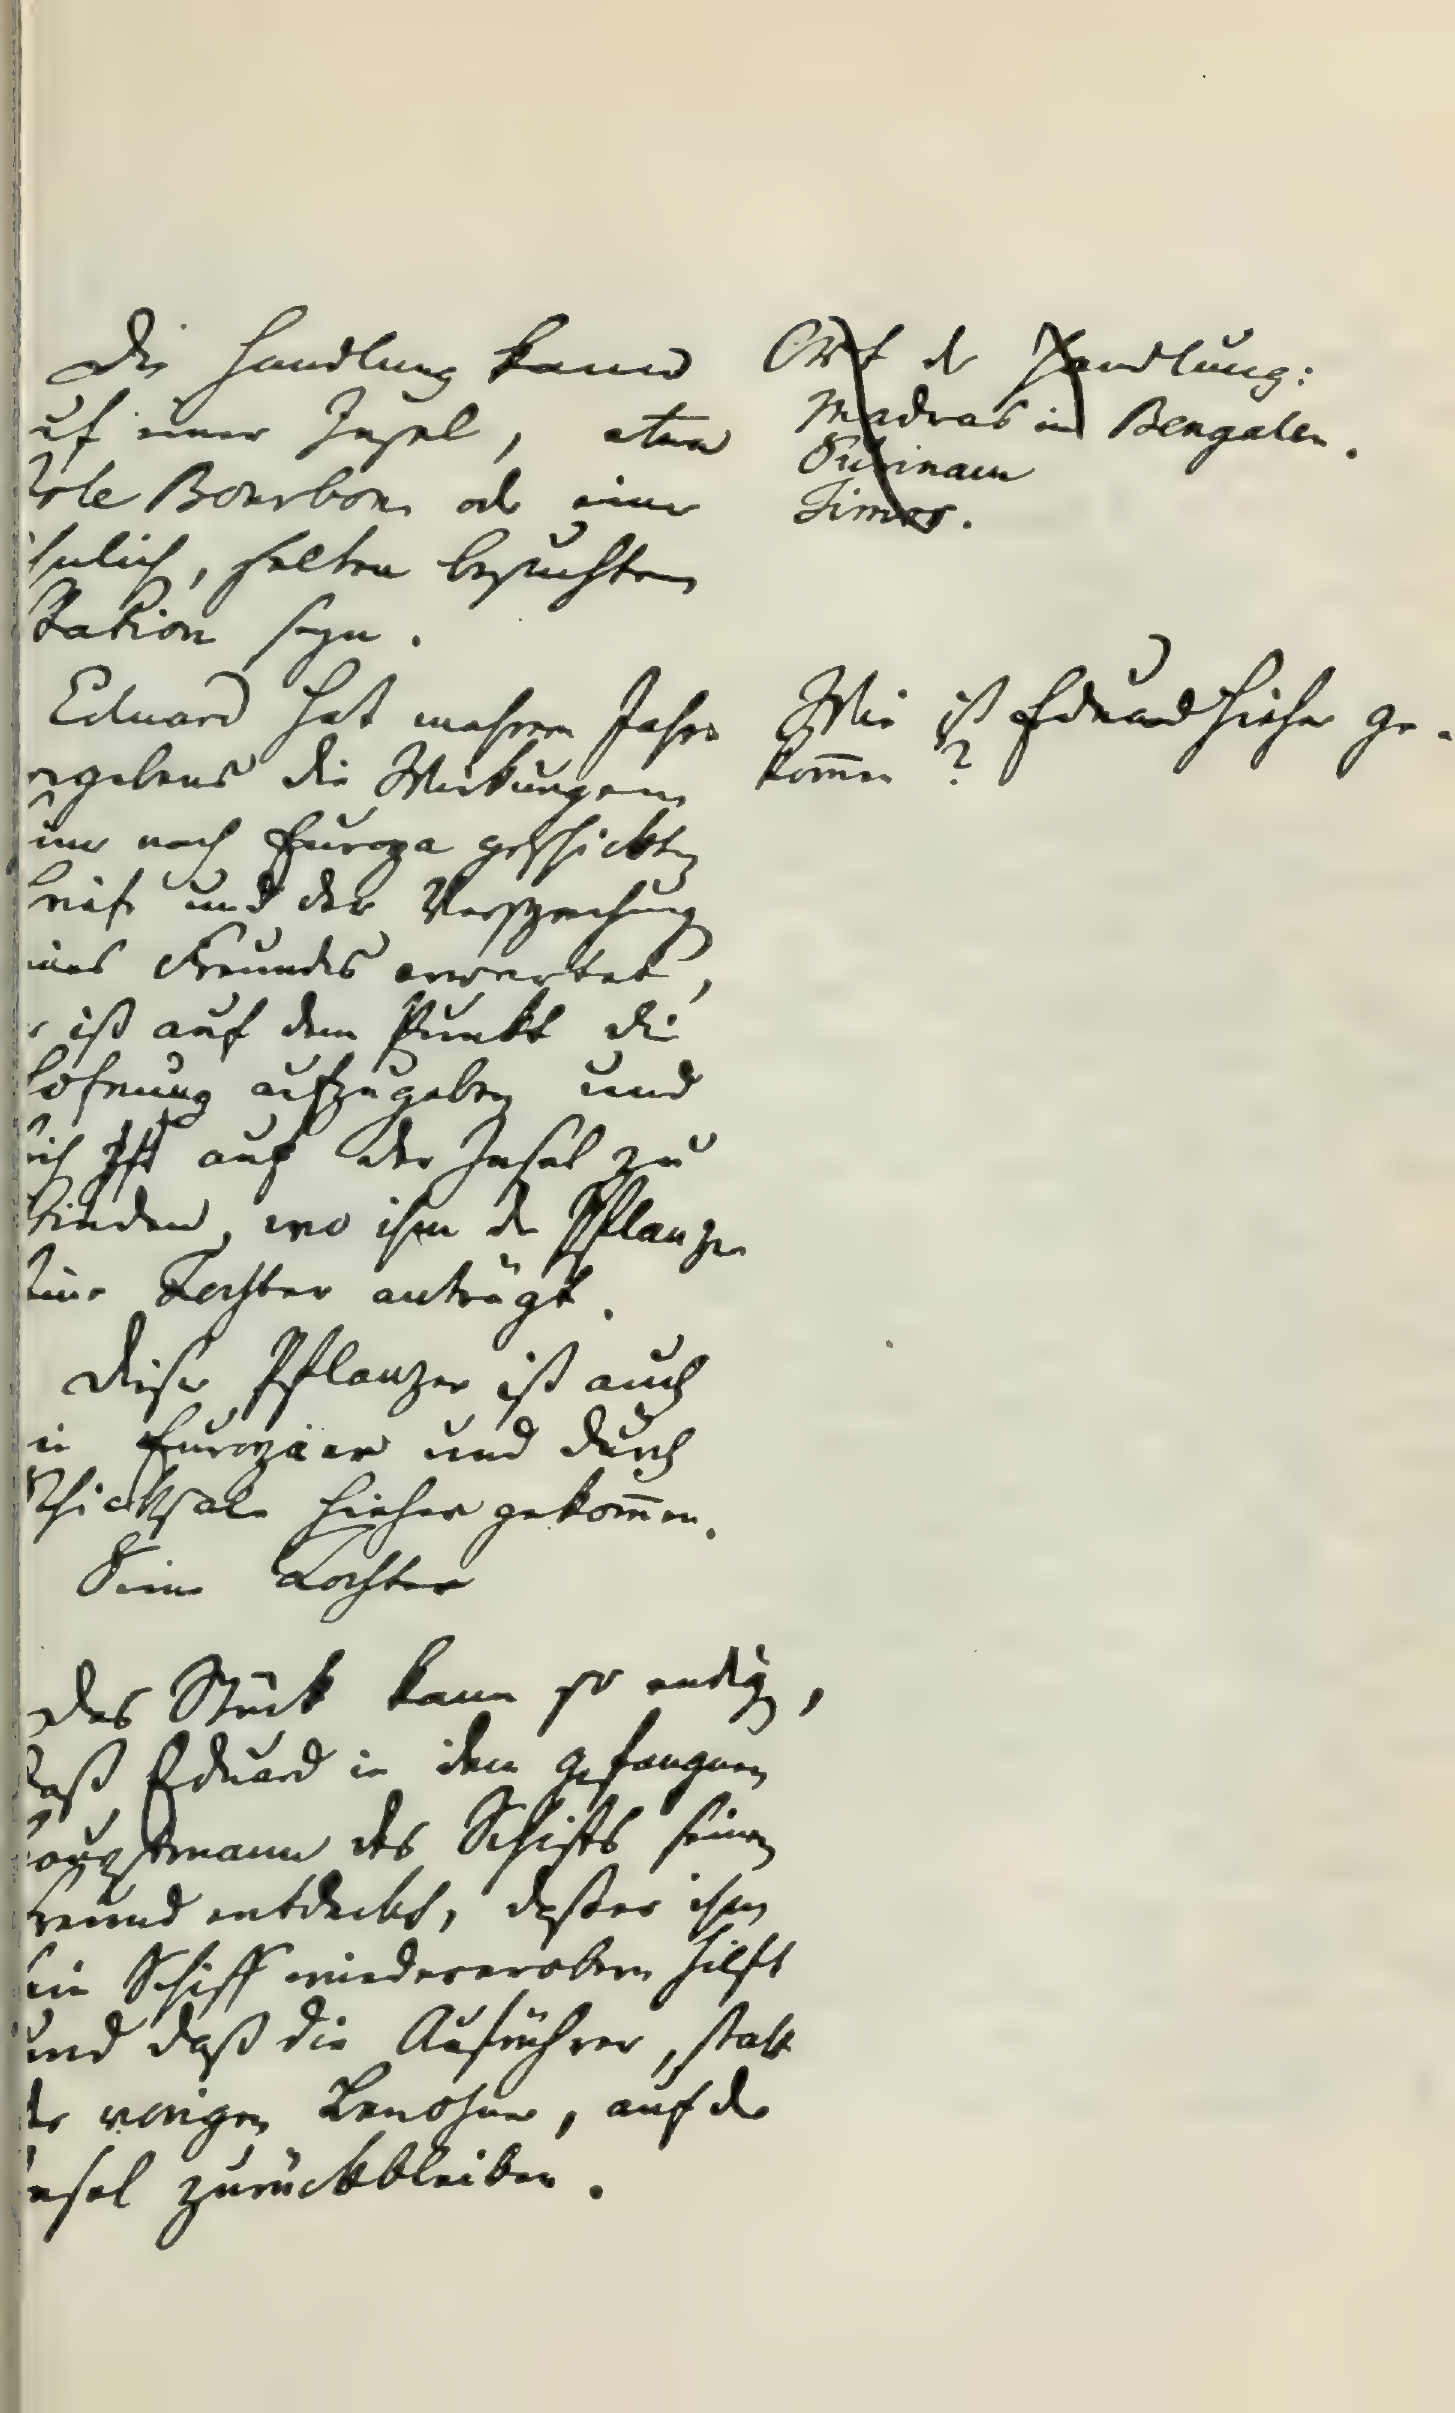 Die Handlung kann
uf einer Insel, etwa
Isle Bourbon od einer
hnlich, selten besuchten
Station seyn.
Eduard hat mehrere Jahre
ergebens die Wirkungen
einer nach Europa geschickten
Briefe und der Versprechung
eines Freundes erwartet,
er ist auf dem Punkt die
Hofnung aufzugeben und
sich auf der Insel zu
binden, wo ihm der Pflanzer
seine Tochter anträgt.
Dieser Pflanzer ist auch
ein Europäer und durch
Schicksale hieher gekom̄en.
Seine Tochter
Das Stück kann so endigen,
daß Eduard in dem gefangnen
Hauptmann des Schiffs seinen
Freund entdeckt, daß er ihm
sein Schiff wiedererobern hilft
und daß die Aufrührer, statt
der vorigen Bewohner, auf der
Insel zurückbleiben.
Ort der Handlung:
Madras in Bengalen.
Surinam
Timor.
Wie ist Eduard hieher ge-
kom̄en?